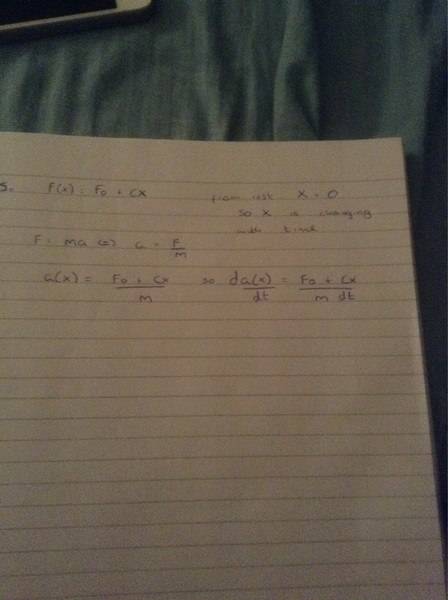 5. F(x) = F0 + cx
from rest x = 0
so x is changing
with time
F = ma => a = F/m
a(x) = F0 + cx / m so da(x)/dt = F0 + cx / m dt